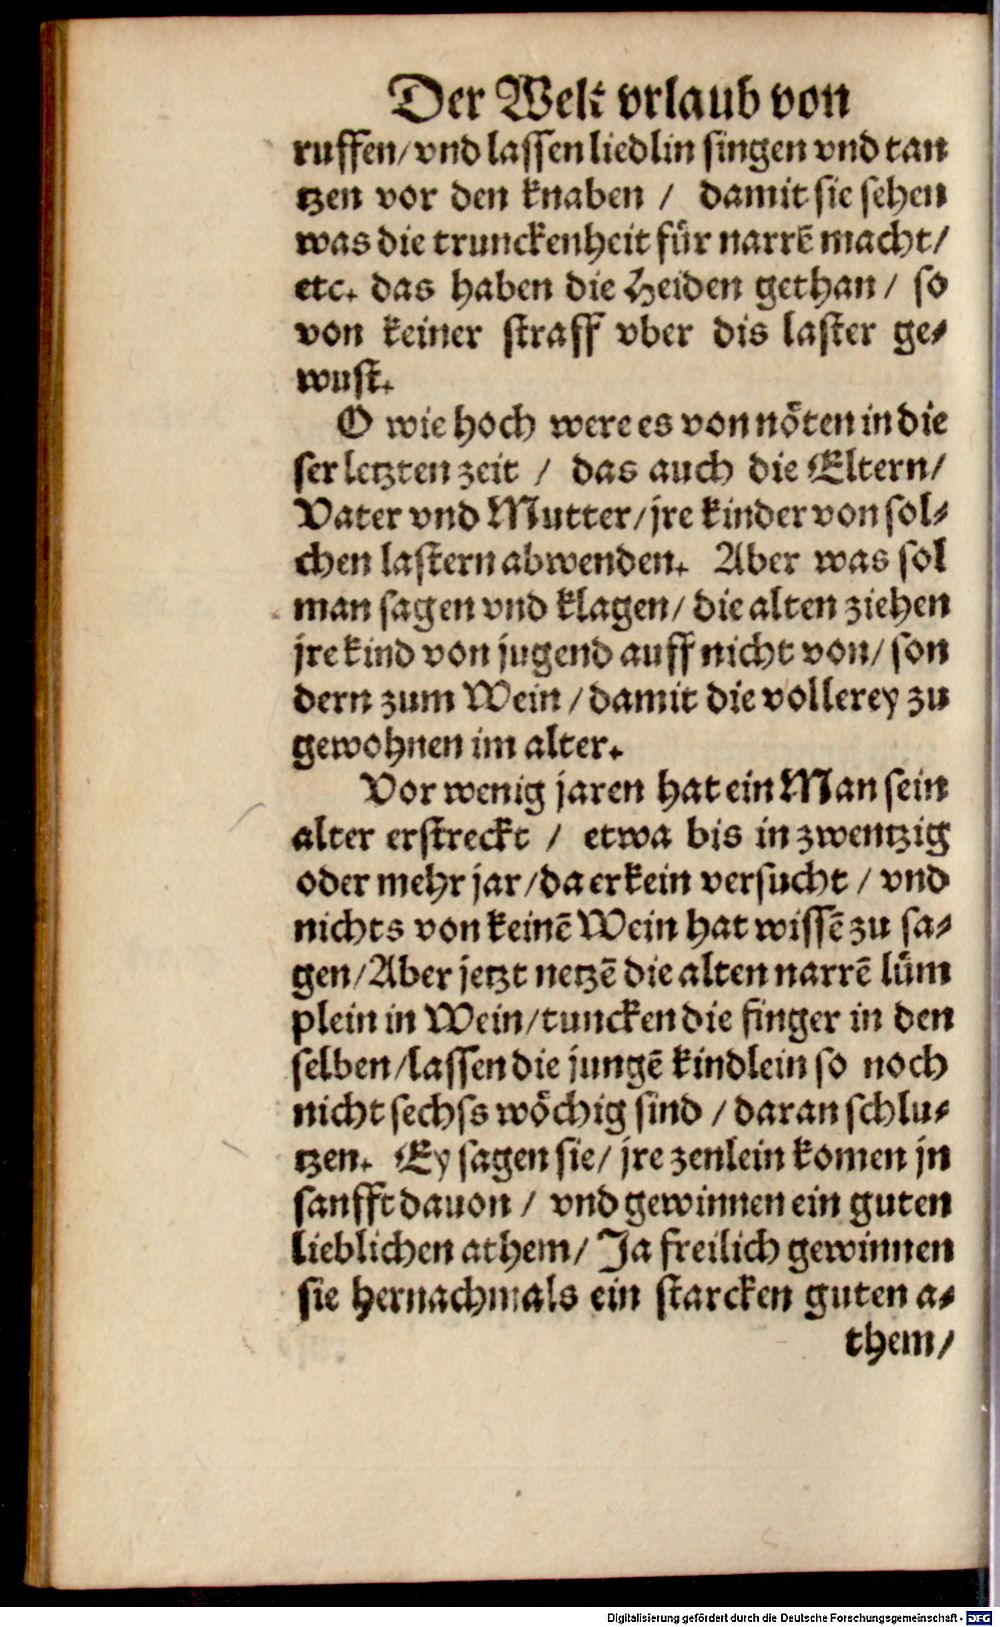 Der Welt vrlaub von
ruffen/ vnd lassen liedlin singen vnd tan
tzen vor den knaben / damit sie sehen
was die trunckenheit für narrẽ macht/
etc. das haben die Heiden gethan / so
von keiner straff vber dis laster ge⸗
wust.
O wie hoch were es von nöten in die
ser letzten zeit / das auch die Eltern/
Vater vnd Mutter/ jre kinder von sol⸗
chen lastern abwenden. Aber was sol
man sagen vnd klagen/ die alten ziehen
jre kind von jugend auff nicht von/ son
dern zum Wein / damit die vollerey zu
gewohnen im alter.
Vor wenig jaren hat ein Man sein
alter erstreckt / etwa bis in zwentzig
oder mehr jar / da er kein versucht / vnd
nichts von keinẽ Wein hat wissẽ zu sa⸗
gen/ Aber jetzt netzẽ die alten narrẽ lüm
plein in Wein/ tuncken die finger in den
selben/ lassen die jungẽ kindlein so noch
nicht sechss wöchig sind / daran schlu⸗
tzen. Ey sagen sie/ jre zenlein komen jn
sanfft dauon / vnd gewinnen ein guten
lieblichen athem/ Ja freilich gewinnen
sie hernachmals ein starcken guten a⸗
them/
Digitalisierung gefördert durch die Deutsche Forschungsgemeinschaft - DFG